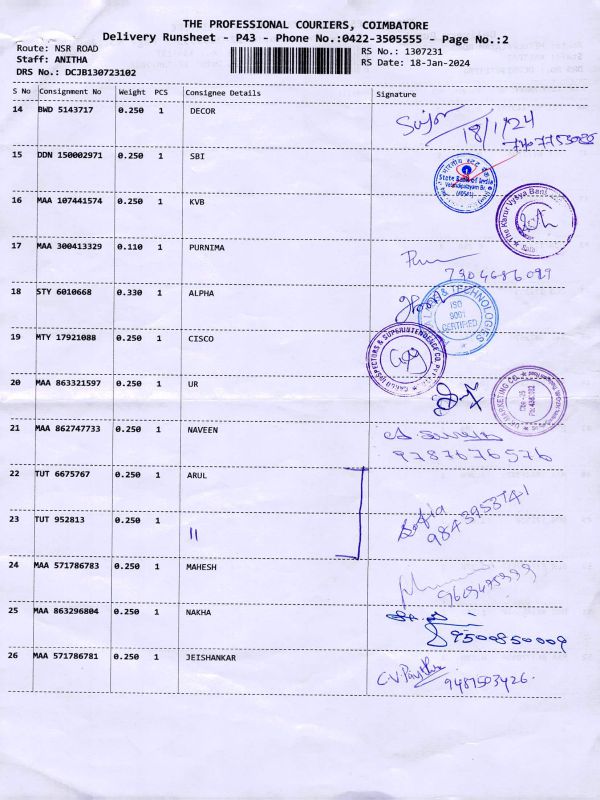 THE PROFESSIONAL COURIERS, COIMBATORE
Delivery Runsheet - P43 - Phone No.:0422-3505555 - Page No.:2
Route: NSR ROAD RS No.: 1307231
Staff: ANITHA RS Date: 18-Jan-2024
DRS No.: DCJB130723102
S No Consignment No Weight PCS Consignee Details Signature
14 BWD 5143717 0.250 1 DECOR
18/1/24
15 DDN 150002971 0.250 1 SBI
State Bank of India
16 MAA 107441574 0.250 1 KVB
The Karur Vysya Bank
17 MAA 300413329 0.110 1 PURNIMA
7904686099
18 STY 6010668 0.330 1 ALPHA
& TECHNOLOGIES
ISO
9001
CERTIFIED
19 MTY 17921088 0.250 1 CISCO
INSPECTORS & SUPERINTENDENCE CO.
20 MAA 863321597 0.250 1 UR
UR MARKETING CO.
21 MAA 862747733 0.250 1 NAVEEN
9787676576
22 TUT 6675767 0.250 1 ARUL
Sofia
9843953741
23 TUT 952813 0.250 1 11
24 MAA 571786783 0.250 1 MAHESH
25 MAA 863296804 0.250 1 NAKHA
9500850009
26 MAA 571786781 0.250 1 JEISHANKAR
9487503426.